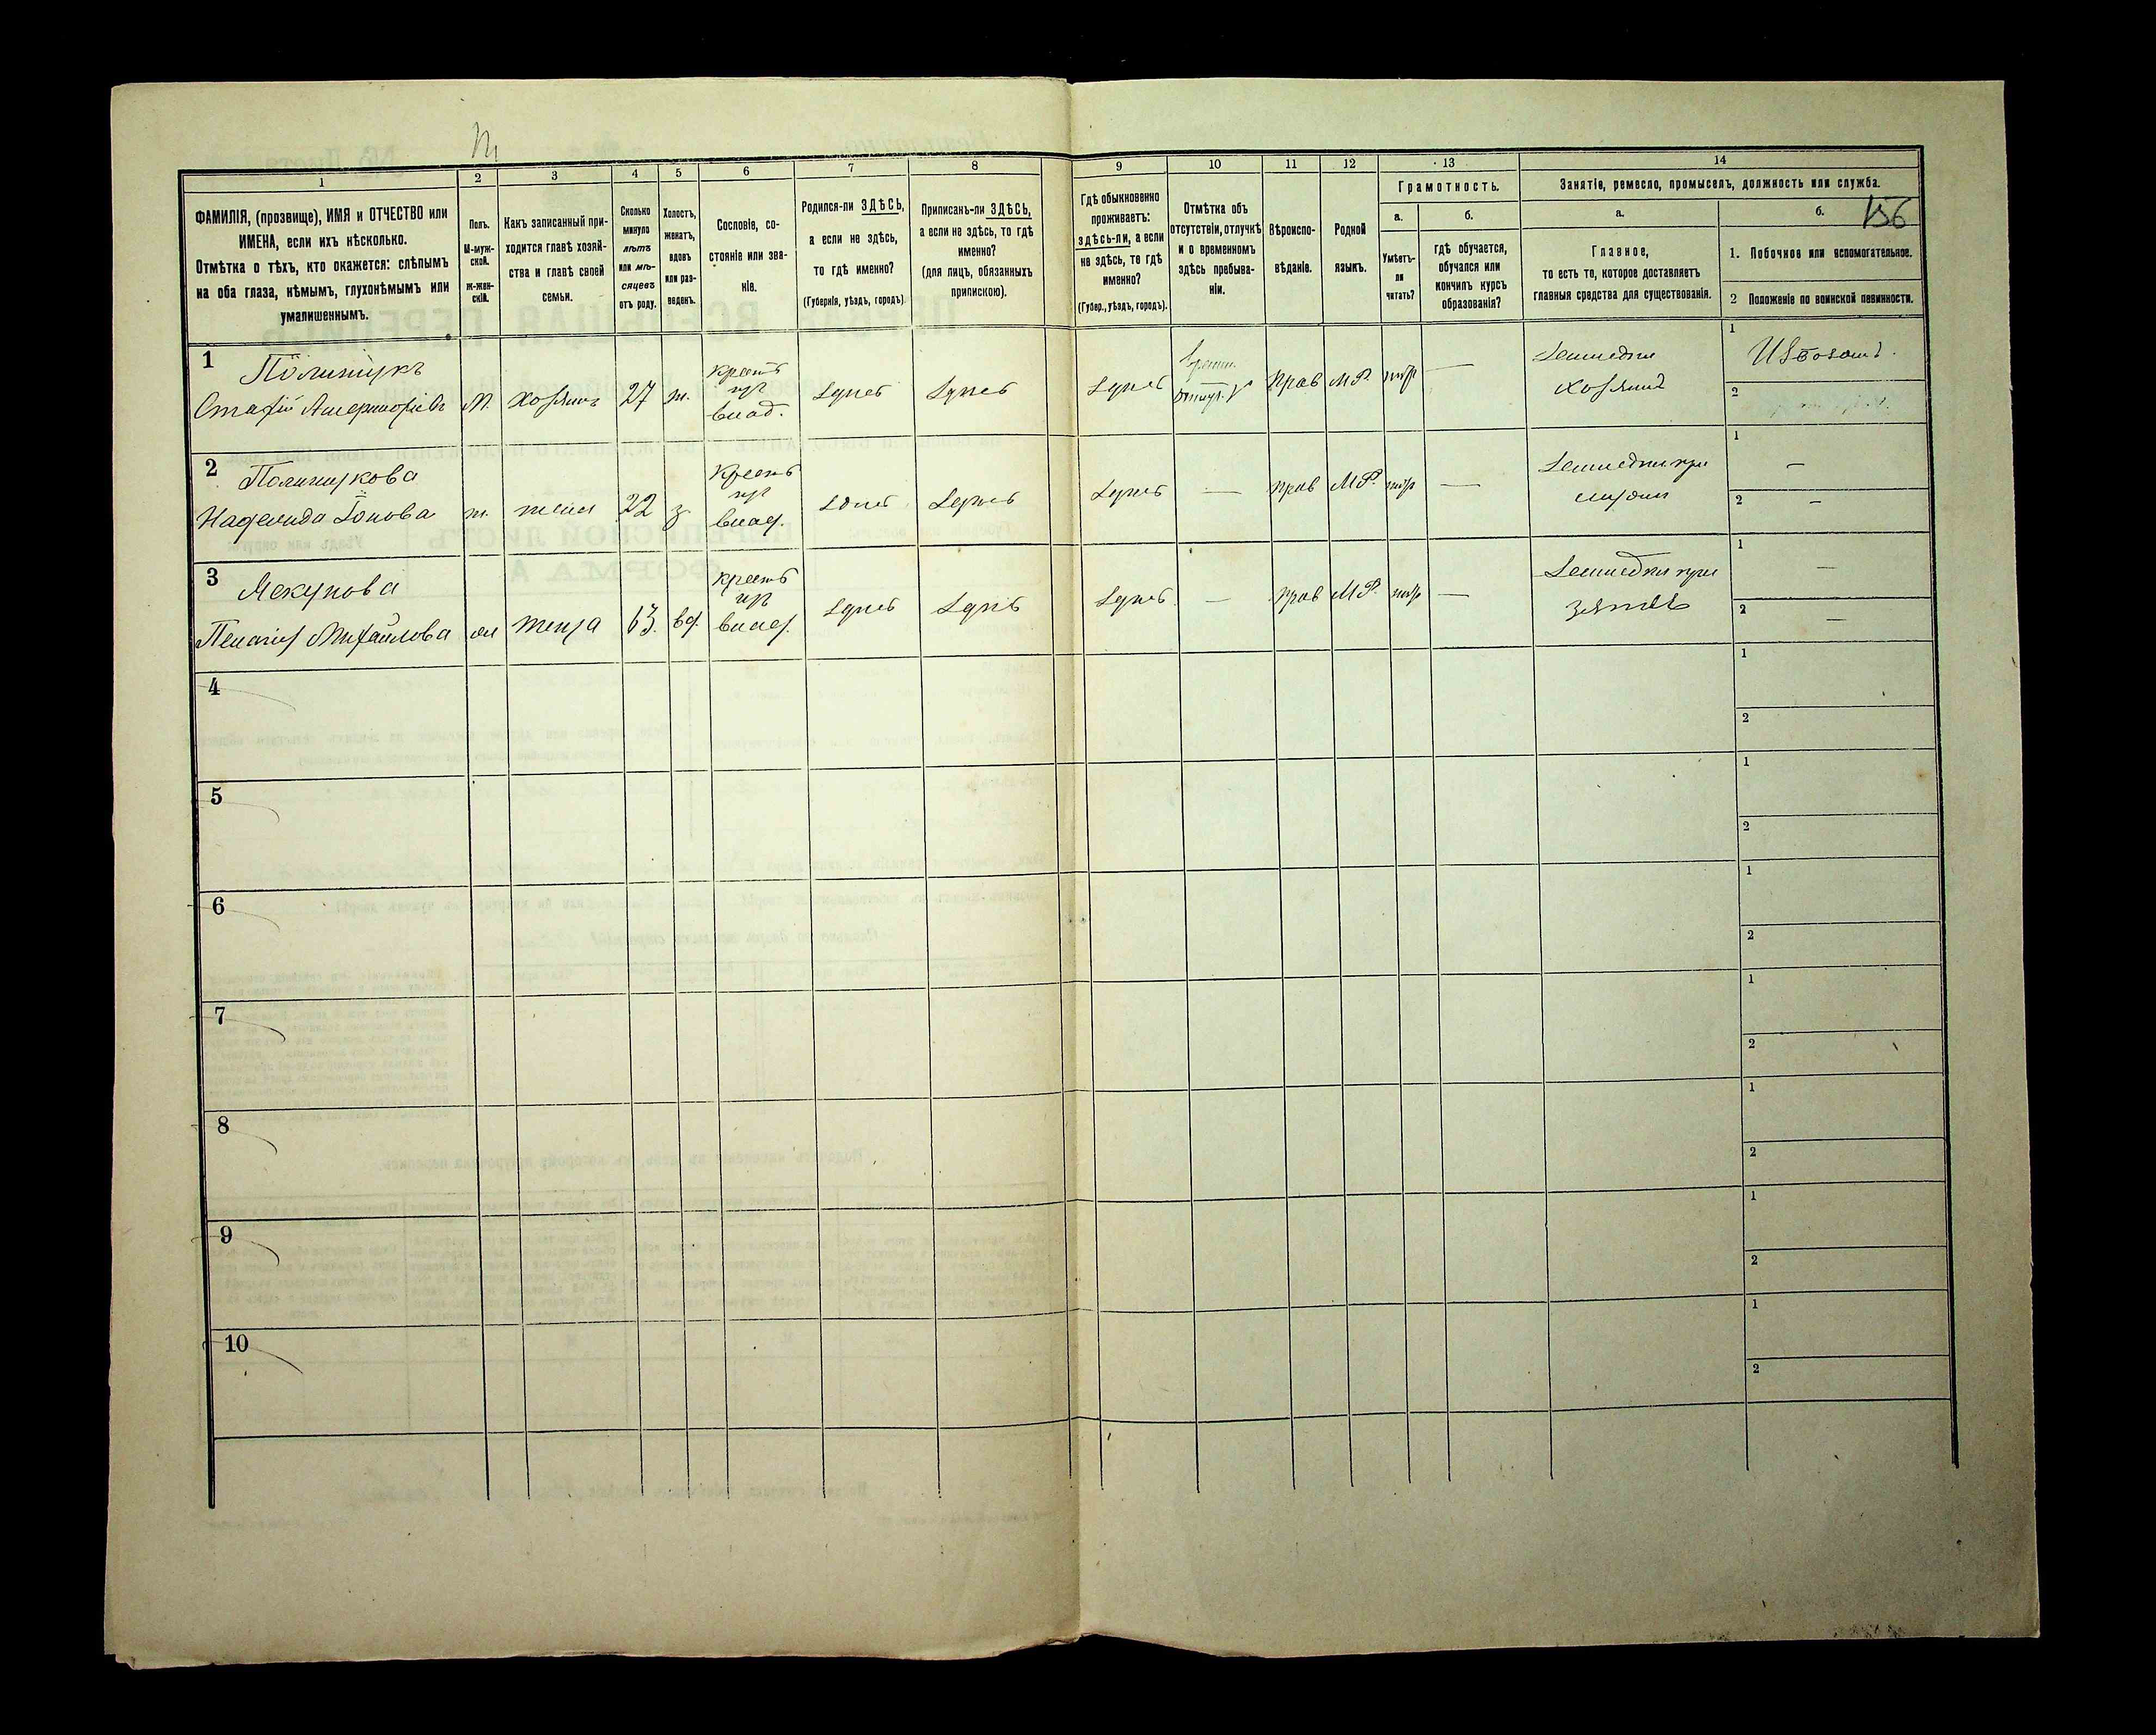 1
2
3
4
5
6
7
8
9
10
11
12
13
14
ФАМИЛІЯ, (прозвище), ИМЯ и ОТЧЕСТВО или
ИМЕНА, если ихъ нѣсколько.
Отмѣтка о тѣхъ, кто окажется: слѣпымъ
на оба глаза, нѣмымъ, глухонѣмымъ или
умалишеннымъ.
Полъ.
М-муж-
ской.
ж-жен-
скій.
Какъ записанный при-
ходится главѣ хозяй-
ства и главѣ своей
семьи.
Сколько
минуло
лѣтъ
или мѣ-
сяцевъ
отъ роду.
Холостъ,
женатъ,
вдовъ
или раз-
веденъ.
Сословіе, со-
стояніе или зва-
ніе.
Родился-ли ЗДѢСЬ,
а если не здѣсь,
то гдѣ именно?
(Губернія, уѣздъ, городъ).
Приписанъ-ли ЗДѢСЬ,
а если не здѣсь, то гдѣ
именно?
(для лицъ, обязанныхъ
припискою).
Гдѣ обыкновенно
проживаетъ:
здѣсь-ли, а если
не здѣсь, то гдѣ
именно?
(Губер., уѣздъ, городъ).
Отмѣтка объ
отсутствіи, отлучкѣ
и о временномъ
здѣсь пребыва-
ніи.
Вѣроиспо-
вѣданіе.
Родной
языкъ.
Грамотность.
а.
Умѣетъ-
ли
читать?
б.
гдѣ обучается,
обучался или
кончилъ курсъ
образованія?
Занятіе, ремесло, промыселъ, должность или служба.
а.
Главное,
то есть то, которое доставляетъ
главныя средства для существованія.
б.
156
1. Побочное или вспомогательное.
2 Положеніе по воинской повинности.
1
Полищукъ
М.
хозяинъ
27
ж.
крест
влад.
здѣсь
здѣсь
здѣсь
прав
М.Р.
хозяинъ
1
Извозомъ.
2
2
Полищукова
ж.
жена
22
з.
крест
влад.
здѣсь
здѣсь
здѣсь
—
прав
М.Р.
—
1
—
2
—
3
Якунова
теща
63.
вд.
крест
влад.
здѣсь
здѣсь
здѣсь
—
прав
М.Р.
—
зятѣ
1
—
2
—
4
1
2
5
1
2
6
1
2
7
1
2
8
1
2
9
1
2
10
1
2